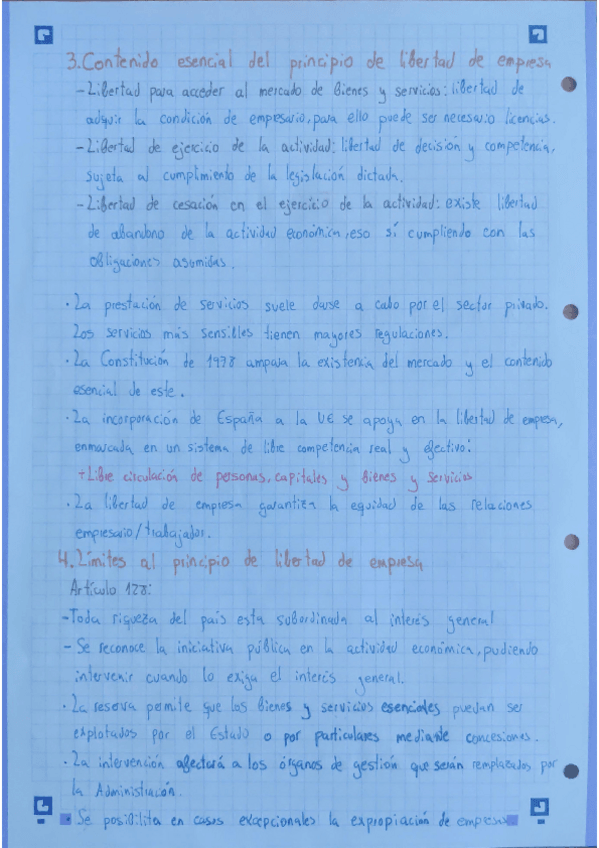 3. Contenido esencial del principio de libertad de empresa
- Libertad para acceder al mercado de bienes y servicios: libertad de
adquirir la condición de empresario, para ello puede ser necesario licencias.
- Libertad de ejercicio de la actividad: libertad de decisión y competencia,
sujeta al cumplimiento de la legislación dictada.
- Libertad de cesación en el ejercicio de la actividad: existe libertad
de abandono de la actividad económica, eso sí cumpliendo con las
obligaciones asumidas.
· La prestación de servicios suele darse a cabo por el sector privado.
Los servicios más sensibles tienen mayores regulaciones.
· La Constitución de 1978 ampara la existencia del mercado y el contenido
esencial de este.
· La incorporación de España a la UE se apoya en la libertad de empresa,
enmarcada en un sistema de libre competencia real y efectivo:
+ Libre circulación de personas, capitales y bienes y servicios
· La libertad de empresa garantiza la equidad de las relaciones
empresario/trabajador.
4. Límites al principio de libertad de empresa
Artículo 128:
- Toda riqueza del país esta subordinada al interés general
- Se reconoce la iniciativa pública en la actividad económica, pudiendo
intervenir cuando lo exiga el interés general.
· La reserva permite que los bienes y servicios esenciales puedan ser
explotados por el Estado o por particulares mediante concesiones.
· La intervención afectará a los órganos de gestión que serán remplazados por
la Administración.
· Se posibilita en casos excepcionales la expropiación de empresas